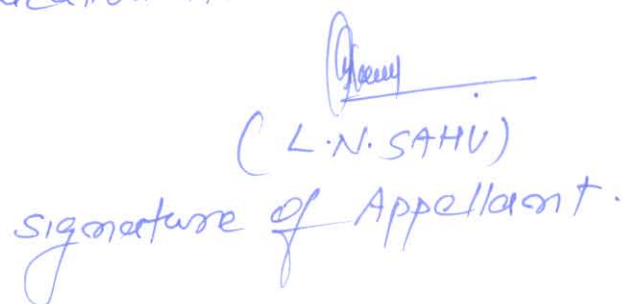 ( L.N. SAHU)
signature of Appellant.